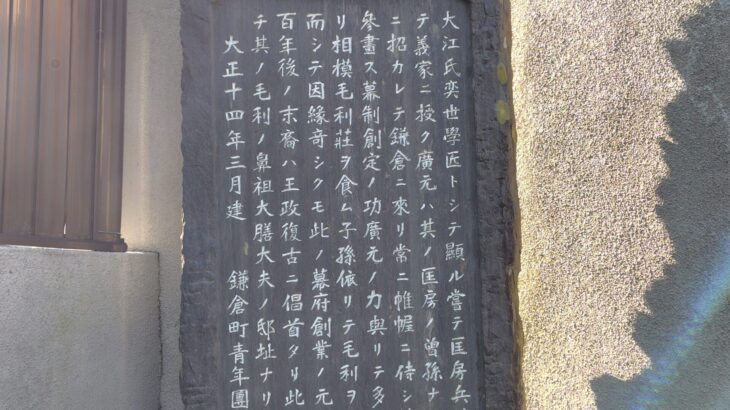 大江氏奕世學匠トシテ顯ル嘗テ匡房兵
テ義家ニ授ク廣元ハ其ノ匡房ノ曾孫ナ
ニ招カレテ鎌倉ニ來リ常ニ帷幄ニ侍シ
參畫ス幕制創定ノ功廣元ノ力與リテ多
リ相模毛利莊ヲ食ム子孫依リテ毛利ヲ
而シテ因緣奇シクモ此ノ幕府創業ノ元
百年後ノ末裔ハ王政復古ニ倡首タリ此
チ其ノ毛利ノ鼻祖大膳大夫ノ邸址ナリ
大正十四年三月建 鎌倉町青年團